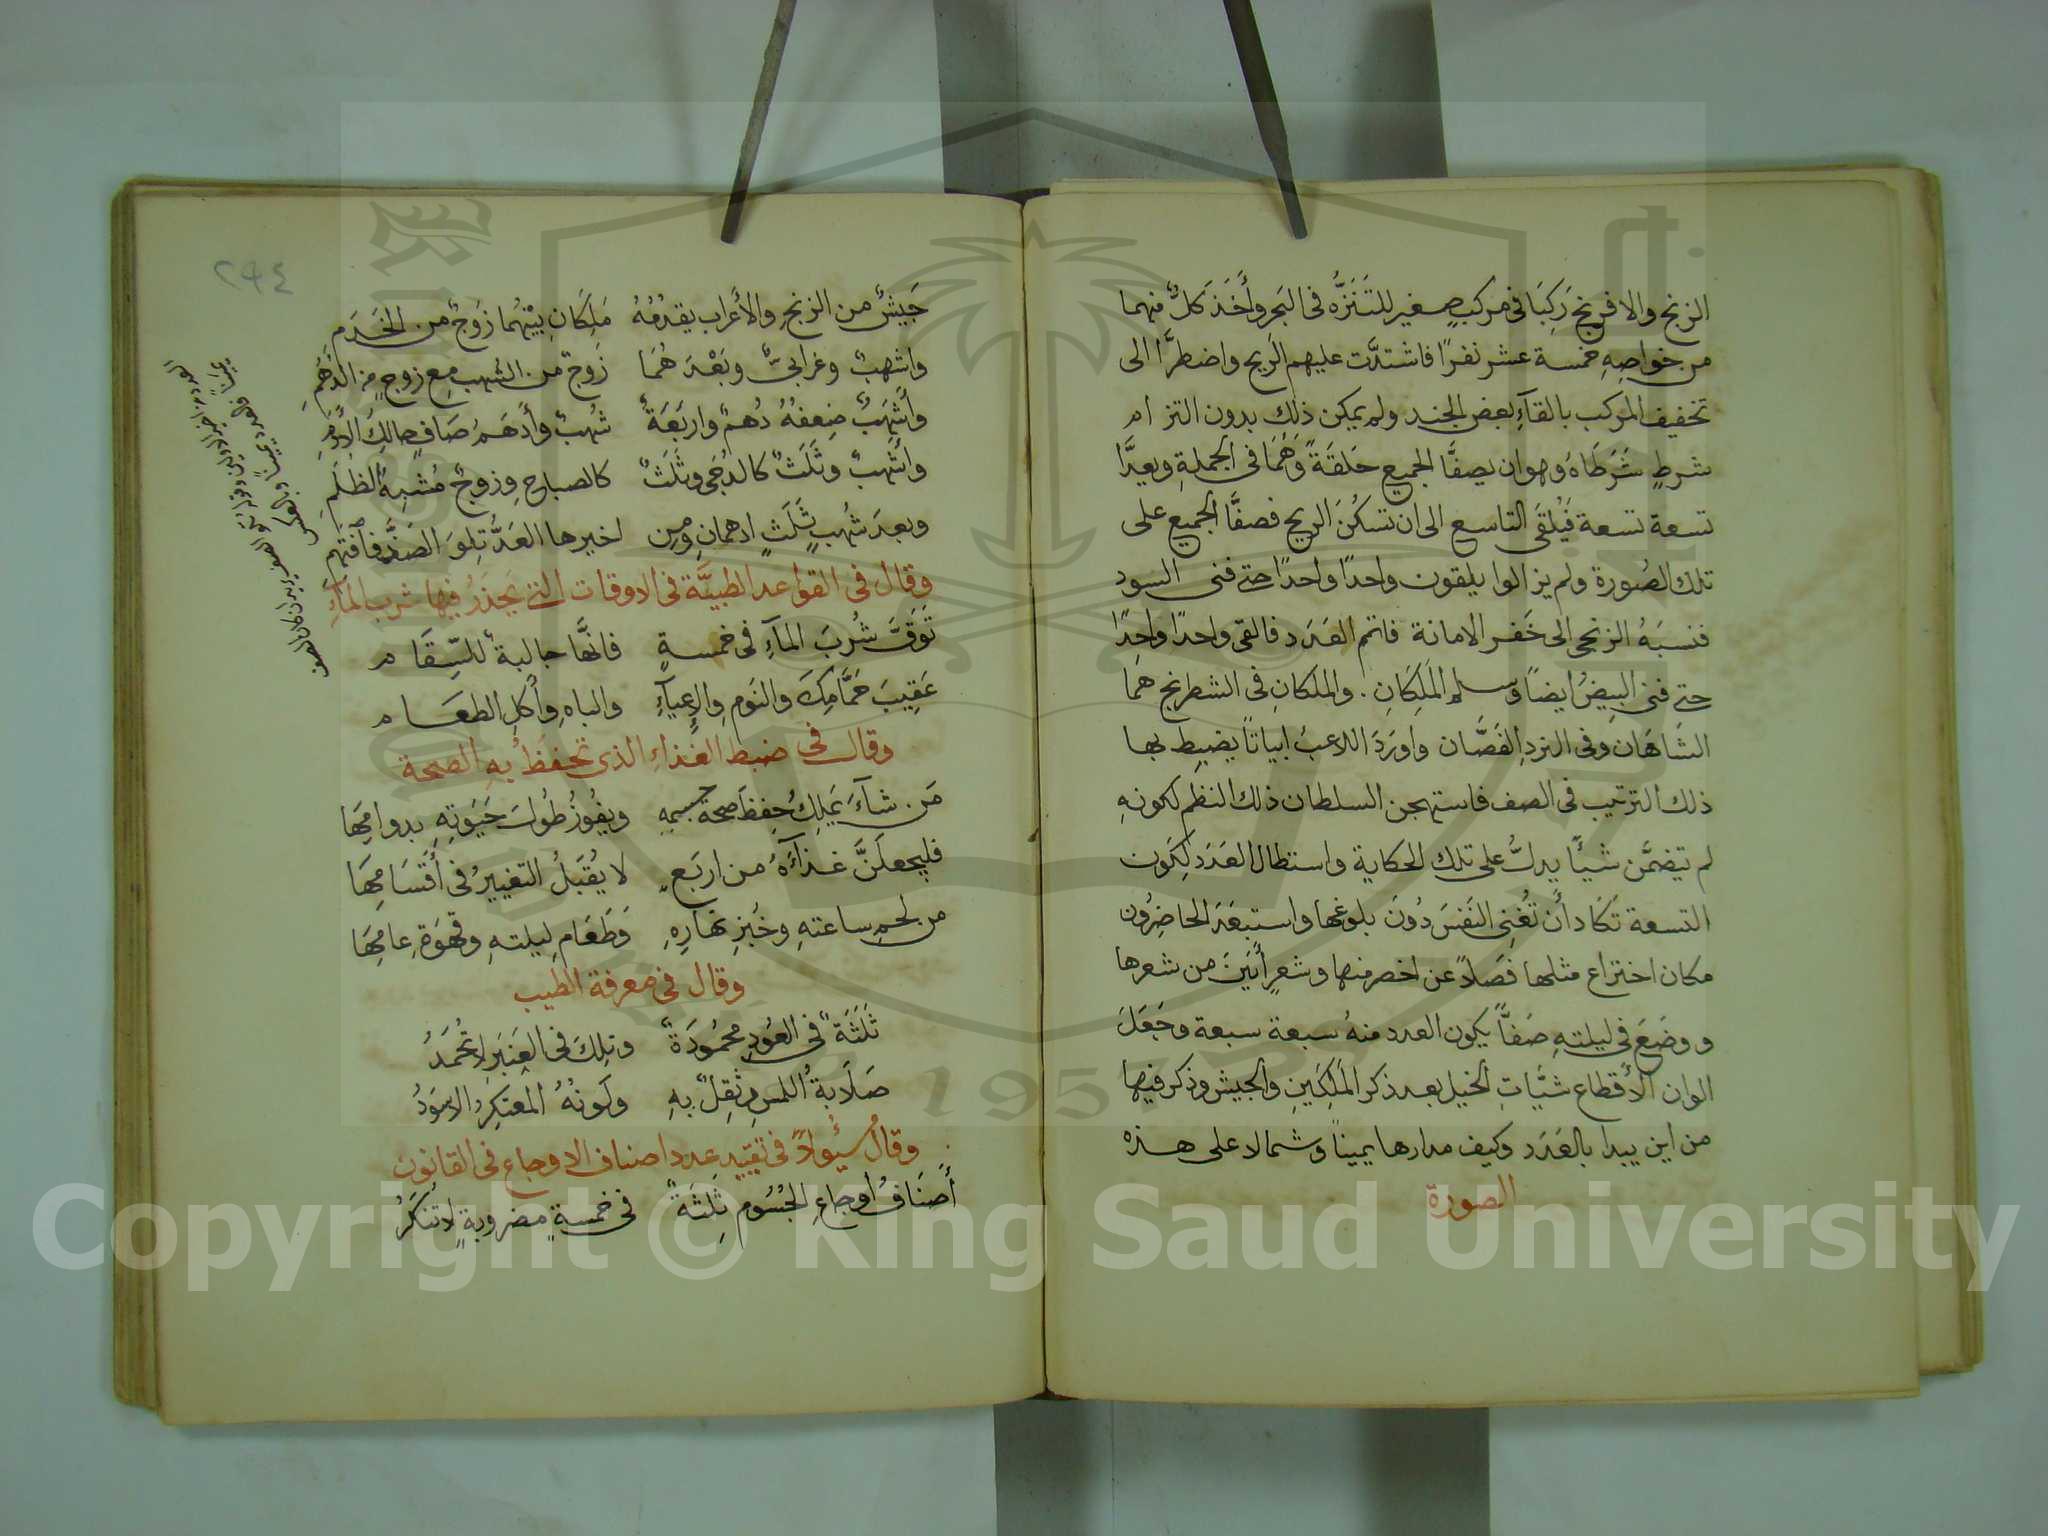 الزنج والافرنج رَكِبَا في مركبٍ صغير للتَنَزُّه في البَحر وأَخَذَ كلٌّ منهما
من خواصِهِ خمسة عشر نفرًا فاشتدَّت عليهم الرّيح واضطرَّا الى
تخفيف المركب بالقآءِ بعض الجند ولم يمكن ذلك بدون التزام
شرطٍ شَرَطَاهُ وهو ان يصفَّا الجميع حَلقَةً وَهُمَا في الجملةِ ويعدَّا
تسعة تسعة فَيُلقَى التاسع الى ان تسكُنَ الريح فصفَّا الجميع على
تلك الصُورة ولم يزالوا يلقون واحدًا واحدًا حتى فنى السود
فنسبَهُ الزنجي الى خَفر الامانة فاتم العَدَد فالقى واحدًا واحِدًا
حتى فنى البِيضُ ايضًا وسلم المَلِكَانِ . والملكانِ في الشطرنج هما
الشاهَان وفي النردِ الفَصَّان واورَدَ اللاعبُ ابياتًا يضبط بها
ذلك الترتيب في الصف فاستهجن السلطان ذلك النظم لكونهِ
لم يتضمَّن شيئًا يدلُّ على تلك الحكاية واستطال العَدَد لِكَون
التسعة تكاد أن تُغنِى النَفسَ دُونَ بلوغها واستبعَدَ الحاضِرُون
مكان اختراع مثلها فَضلاً عن اخصر منها وشعرٍ أَبيَنَ من شعرها
ووضَعَ في ليلتهِ صَفًّا يكون العدد منهُ سبعة سبعة وجَعَلَ
الوان الأقطاع شيَّاتِ الخيل بعد ذكر المَلِكَينِ والجيش وذكر فيها
من اين يبدا بالعَدَد وكيف مدارها يمينًا وشمالا على هذه
الصورة
٢٩٤
جَيشٌ من الزنجِ والأعراب يقدُمُهُ مَلِكَانِ بينهُما زَوجٌ من الخَدَم
واشهبٌ وغرابيٌّ وبَعْدَهُمَا زَوجٌ من الشُهبِ مع زوجٍ من الدَهَمِ
وأَشهَبٌ ضِعفُهُ دُهمٌ واربَعَةٌ شُهبٌ وأدهَمُ صَافٍ حالِكُ الأَدَمِ
وأَشهبٌ وثَلَثٌ كالدُجَى وثَلَثٌ كالصباحِ وزوجٌ مُشبِهُ الظُلَمِ
وبعدَ شُهبٍ ثَلَثٍ ادهمانِ ومِن اخيرها العَدُّ تِلوَ الصَفِّ فافتهمِ
وقال في القواعد الطبيَّة في الاوقات التي يَحذَرُ فيها شرب المآءِ
تَوَقَّ شُربَ المآءِ في خمسةٍ فانَّها جالبةٌ للسِّقَام
عَقِيبَ حَمَّامِكَ والنَومِ والاعيآءِ والباهِ وأكلِ الطعَام
وقال في ضبط الغذاءِ الذي تحفَظُ بهِ الصحة
مَن شآءَ يَملِكُ حِفظَ صحة جسمِهِ ويفُوزُ طُولَ حَيَوتِهِ بدوامِهَا
فليجعلَنَّ غذآءَهُ من اربَعٍ لا يُقبَلُ التغييرُ في أقسَامِهَا
من لحمِ ساعتهِ وخُبزِ نهارِهِ وَطَعَامِ ليلتهِ وقهوَةِ عامِهَا
وقال في معرفة الطيب
ثَلَثَةٌ في العُودِ محمُودَةٌ وتِلكَ في العنبَرِ لا تُحمَدُ
صَلَابةُ اللمسِ ثِقِلٌ بهِ ولَونُهُ المعتكِرُ الاسوَدُ
وقال سُؤَلاً في تقييدِ عددِ اصناف الاوجاع في القانون
أَصنَافُ أوجاعِ الجُسُومِ ثلثَةٌ في خمسةٍ مضروبةٍ لا تنكَرُ